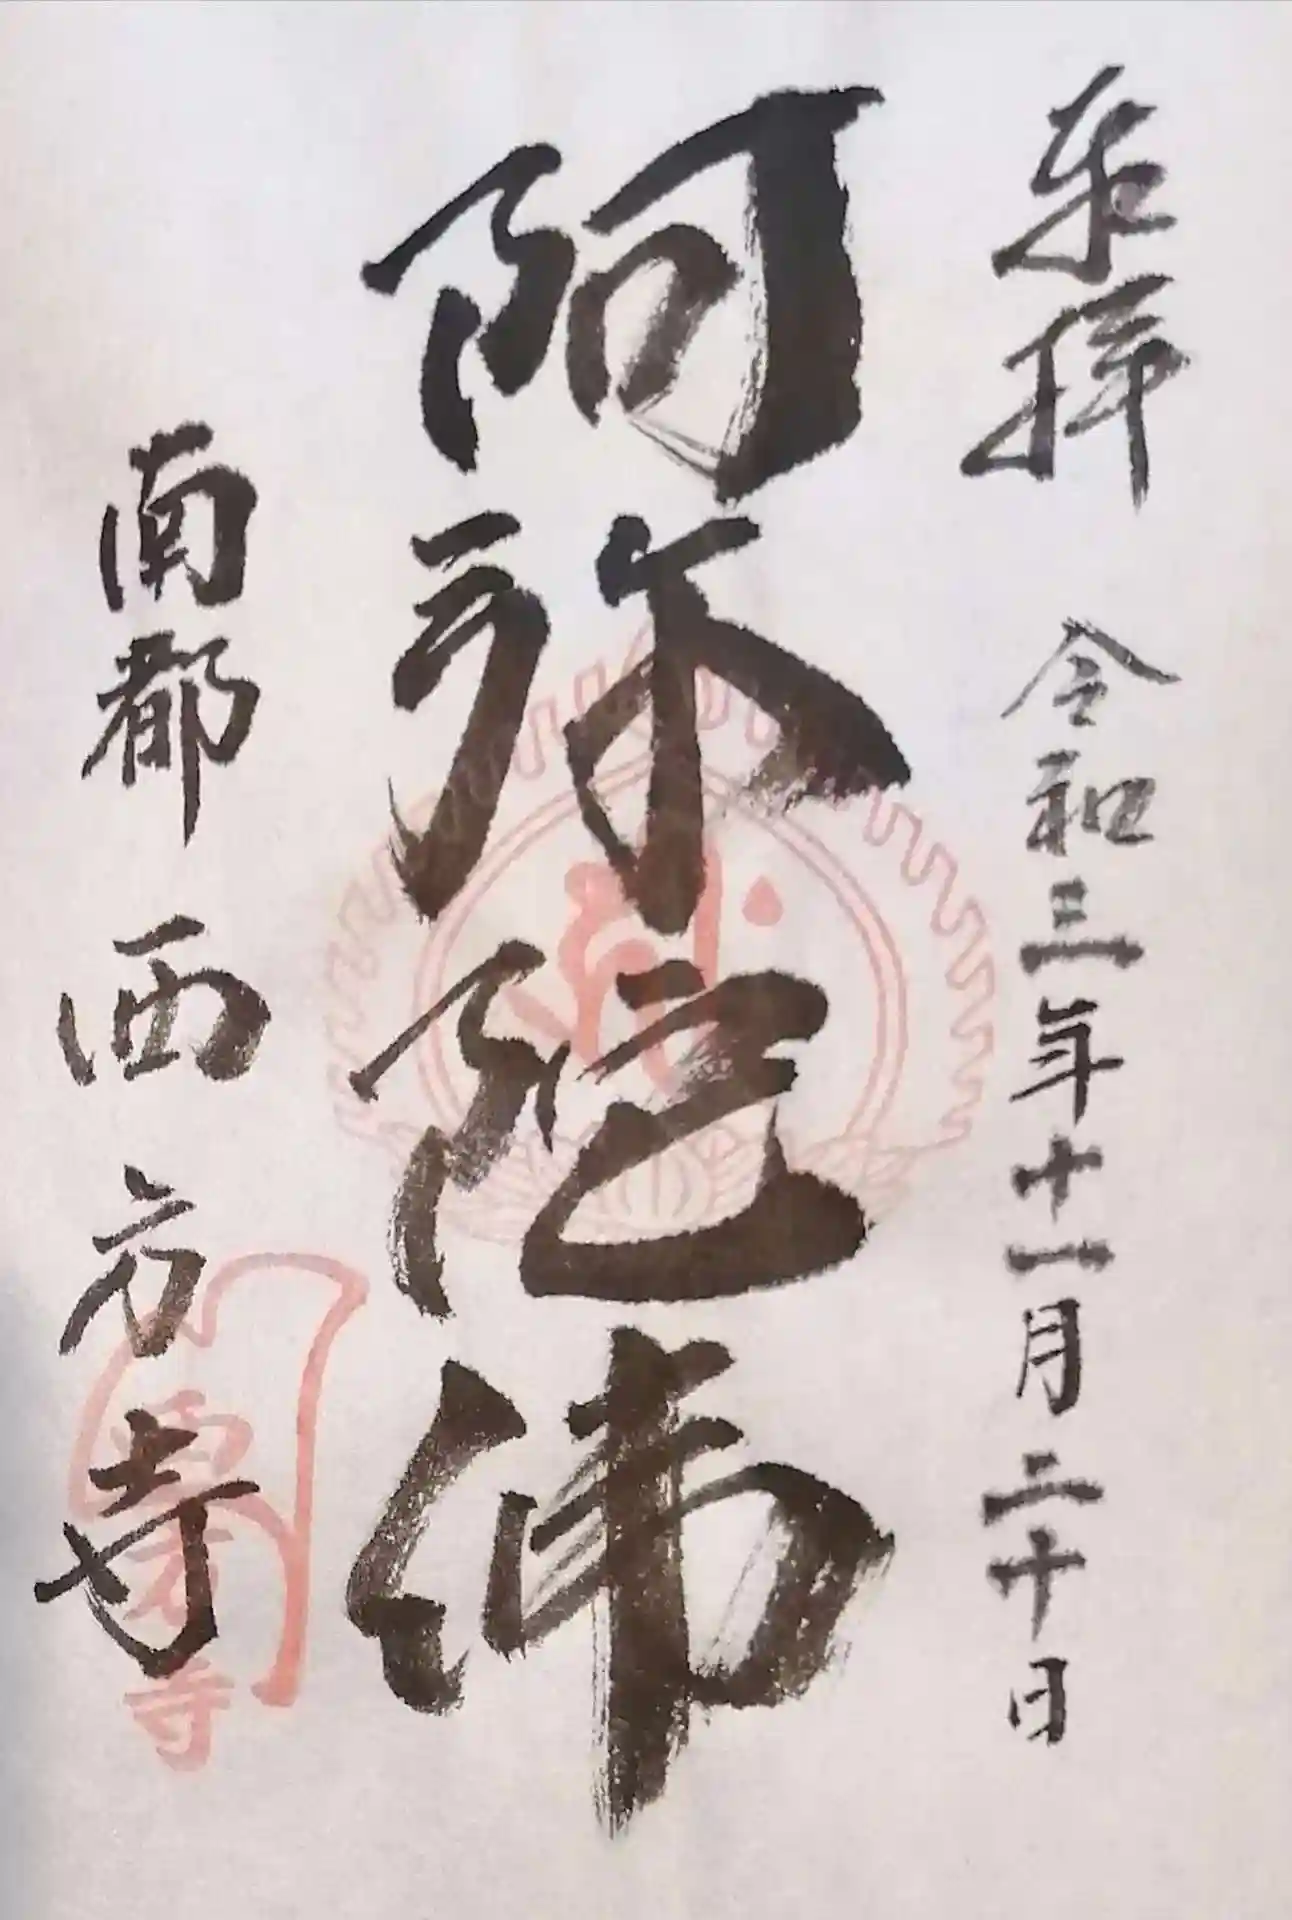 奉拝 令和三年十一月二十日
阿弥陀佛
南都 西方寺
西方寺